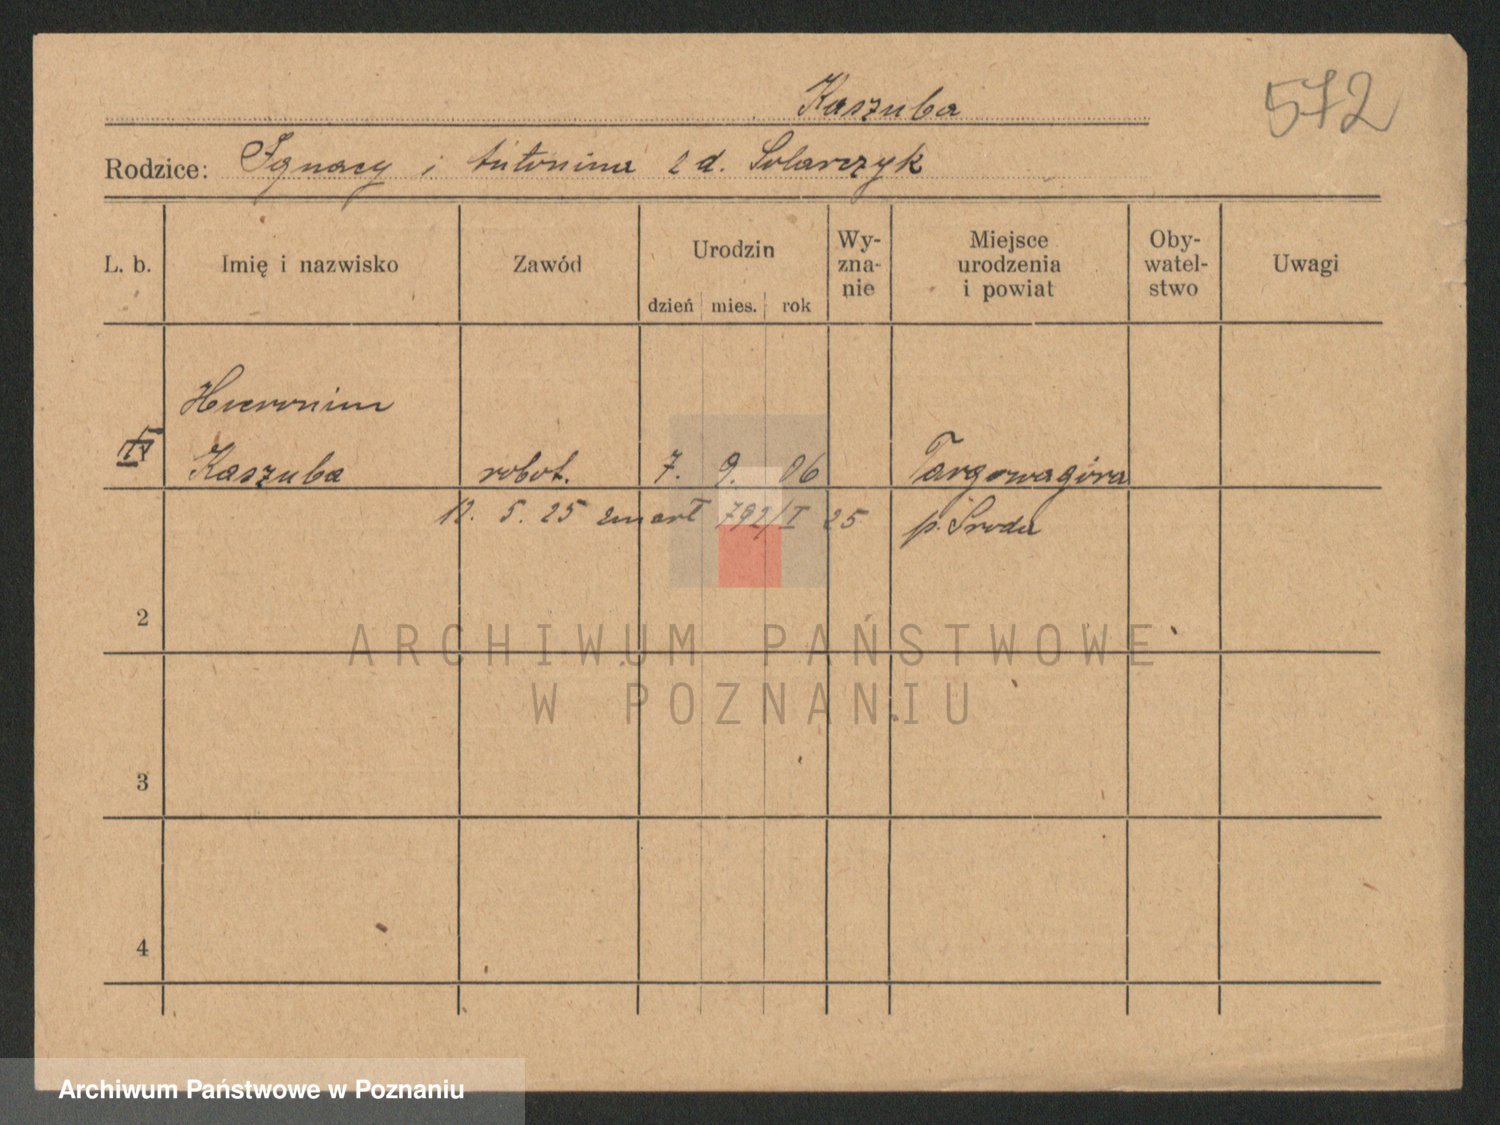 572
Kaszuba
Rodzice: Ignacy i Antonina z d. Solarczyk
L. b. Imię i nazwisko Zawód Urodzin dzień mies. rok Wy-zna-nie Miejsce urodzenia i powiat Oby-watel-stwo Uwagi
Hieronim
Kaszuba robot. 7. 9. 06 Targowagóra
12. 5. 25 zmarł 792/I 25 p. Środa
2
3
4
ARCHIWUM PAŃSTWOWE
W POZNANIU
Archiwum Państwowe w Poznaniu